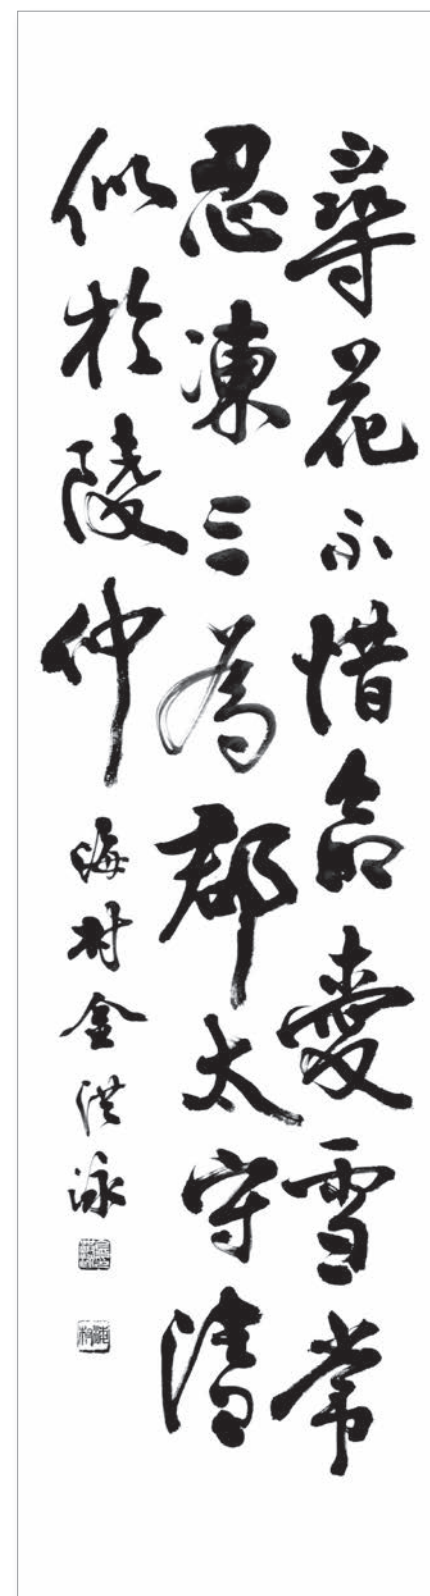 尋花不惜命愛雪常
忍凍三為郡太守清
似於陵仲
海村金洪泳